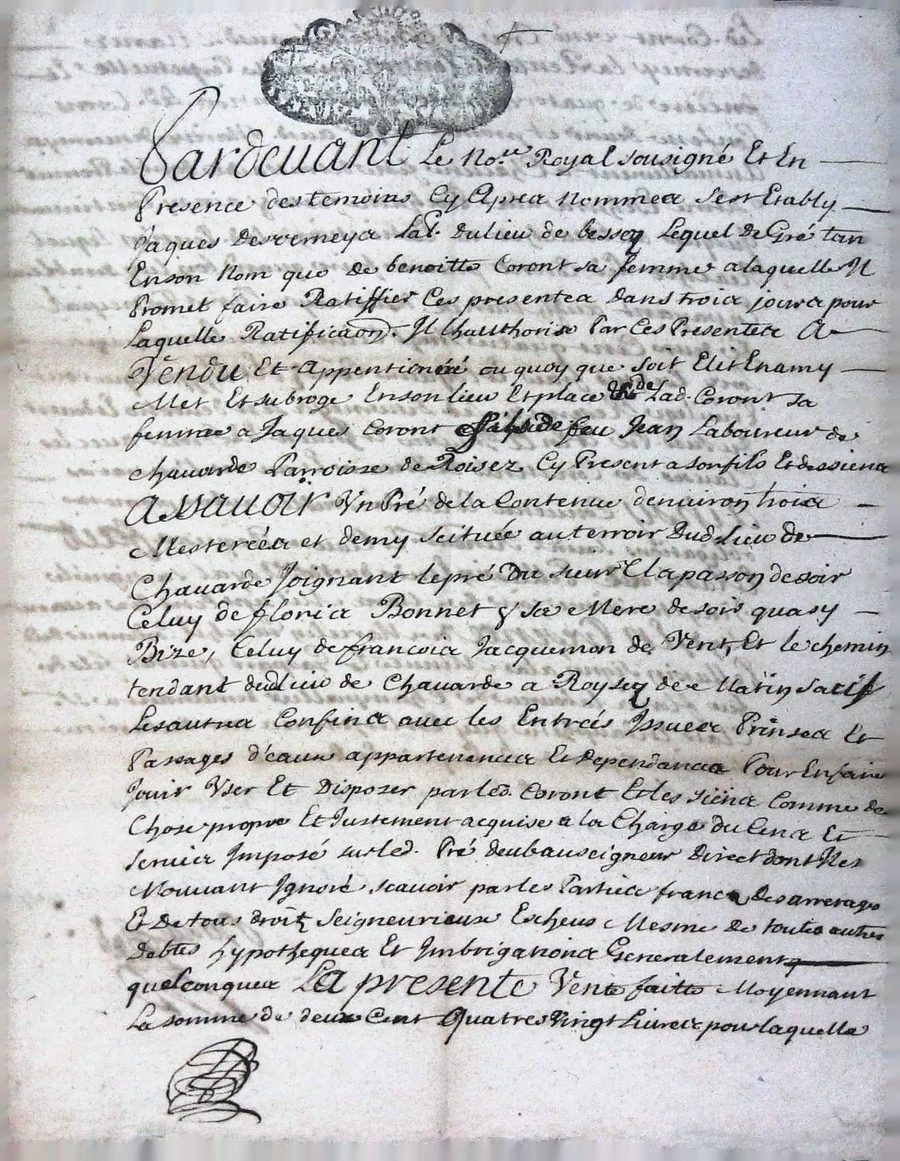 Pardevant Le No.re Royal sousigné Et En
Presence des temoins Cy Apres nommes s'est Etably
Jaques Desremeys Lab. du lieu de bessey Lequel de Gré tan
En son Nom que de benoitte Coront sa femme a laquelle Il
Promet faire Ratiffier Ces presentes dans trois jours pour
Laquelle Ratification Il Lhauthorise Par Ces Presentes A
Vendu Et Appentionné ou quoy que soit Elit En amy
Met Et subroge En son lieu Et place de Lad. Coront sa
femme a Jaques Coront fils de feu Jean Laboureur de
Chavarde Parroisse de Roisez Cy Present a son fils Et des siens
Assavoir Un Pré de la Contenue d'environ trois
Mesterées et demy scituée au terroir Dud. Lieu de
Chavarde Joignant le pré Du sieur Clapasson de soir
Celuy de floris Bonnet & sa Mere de soir quasy
Bize, Celuy de francois Jacquemon de Vent, Et le chemin
tendant dud lieu de Chavarde a Roysey de Matin sauf
Les autres Confins avec les Entrées Issues Prinses Et
Passages d'eaux appartenences Et dependances Pour En faire
Jouir User Et Disposer par led. Coront Et les siens Comme de
Chose propre Et Justement acquise a la Charge du Cens Et
servis Imposé sur led. Pré deub au seigneur Direct dont Il est
Mouvant Ignoré scavoir par les Parties franc des arrerages
Et De tous droits Seigneuriaux Escheus Mesme de toutes autres
debtes hypotheques Et Imbrigations Generalement
quelconques La presente Vente faitte Moyennant
La somme de deux Cent Quatres Vingt Livres pour laquelle